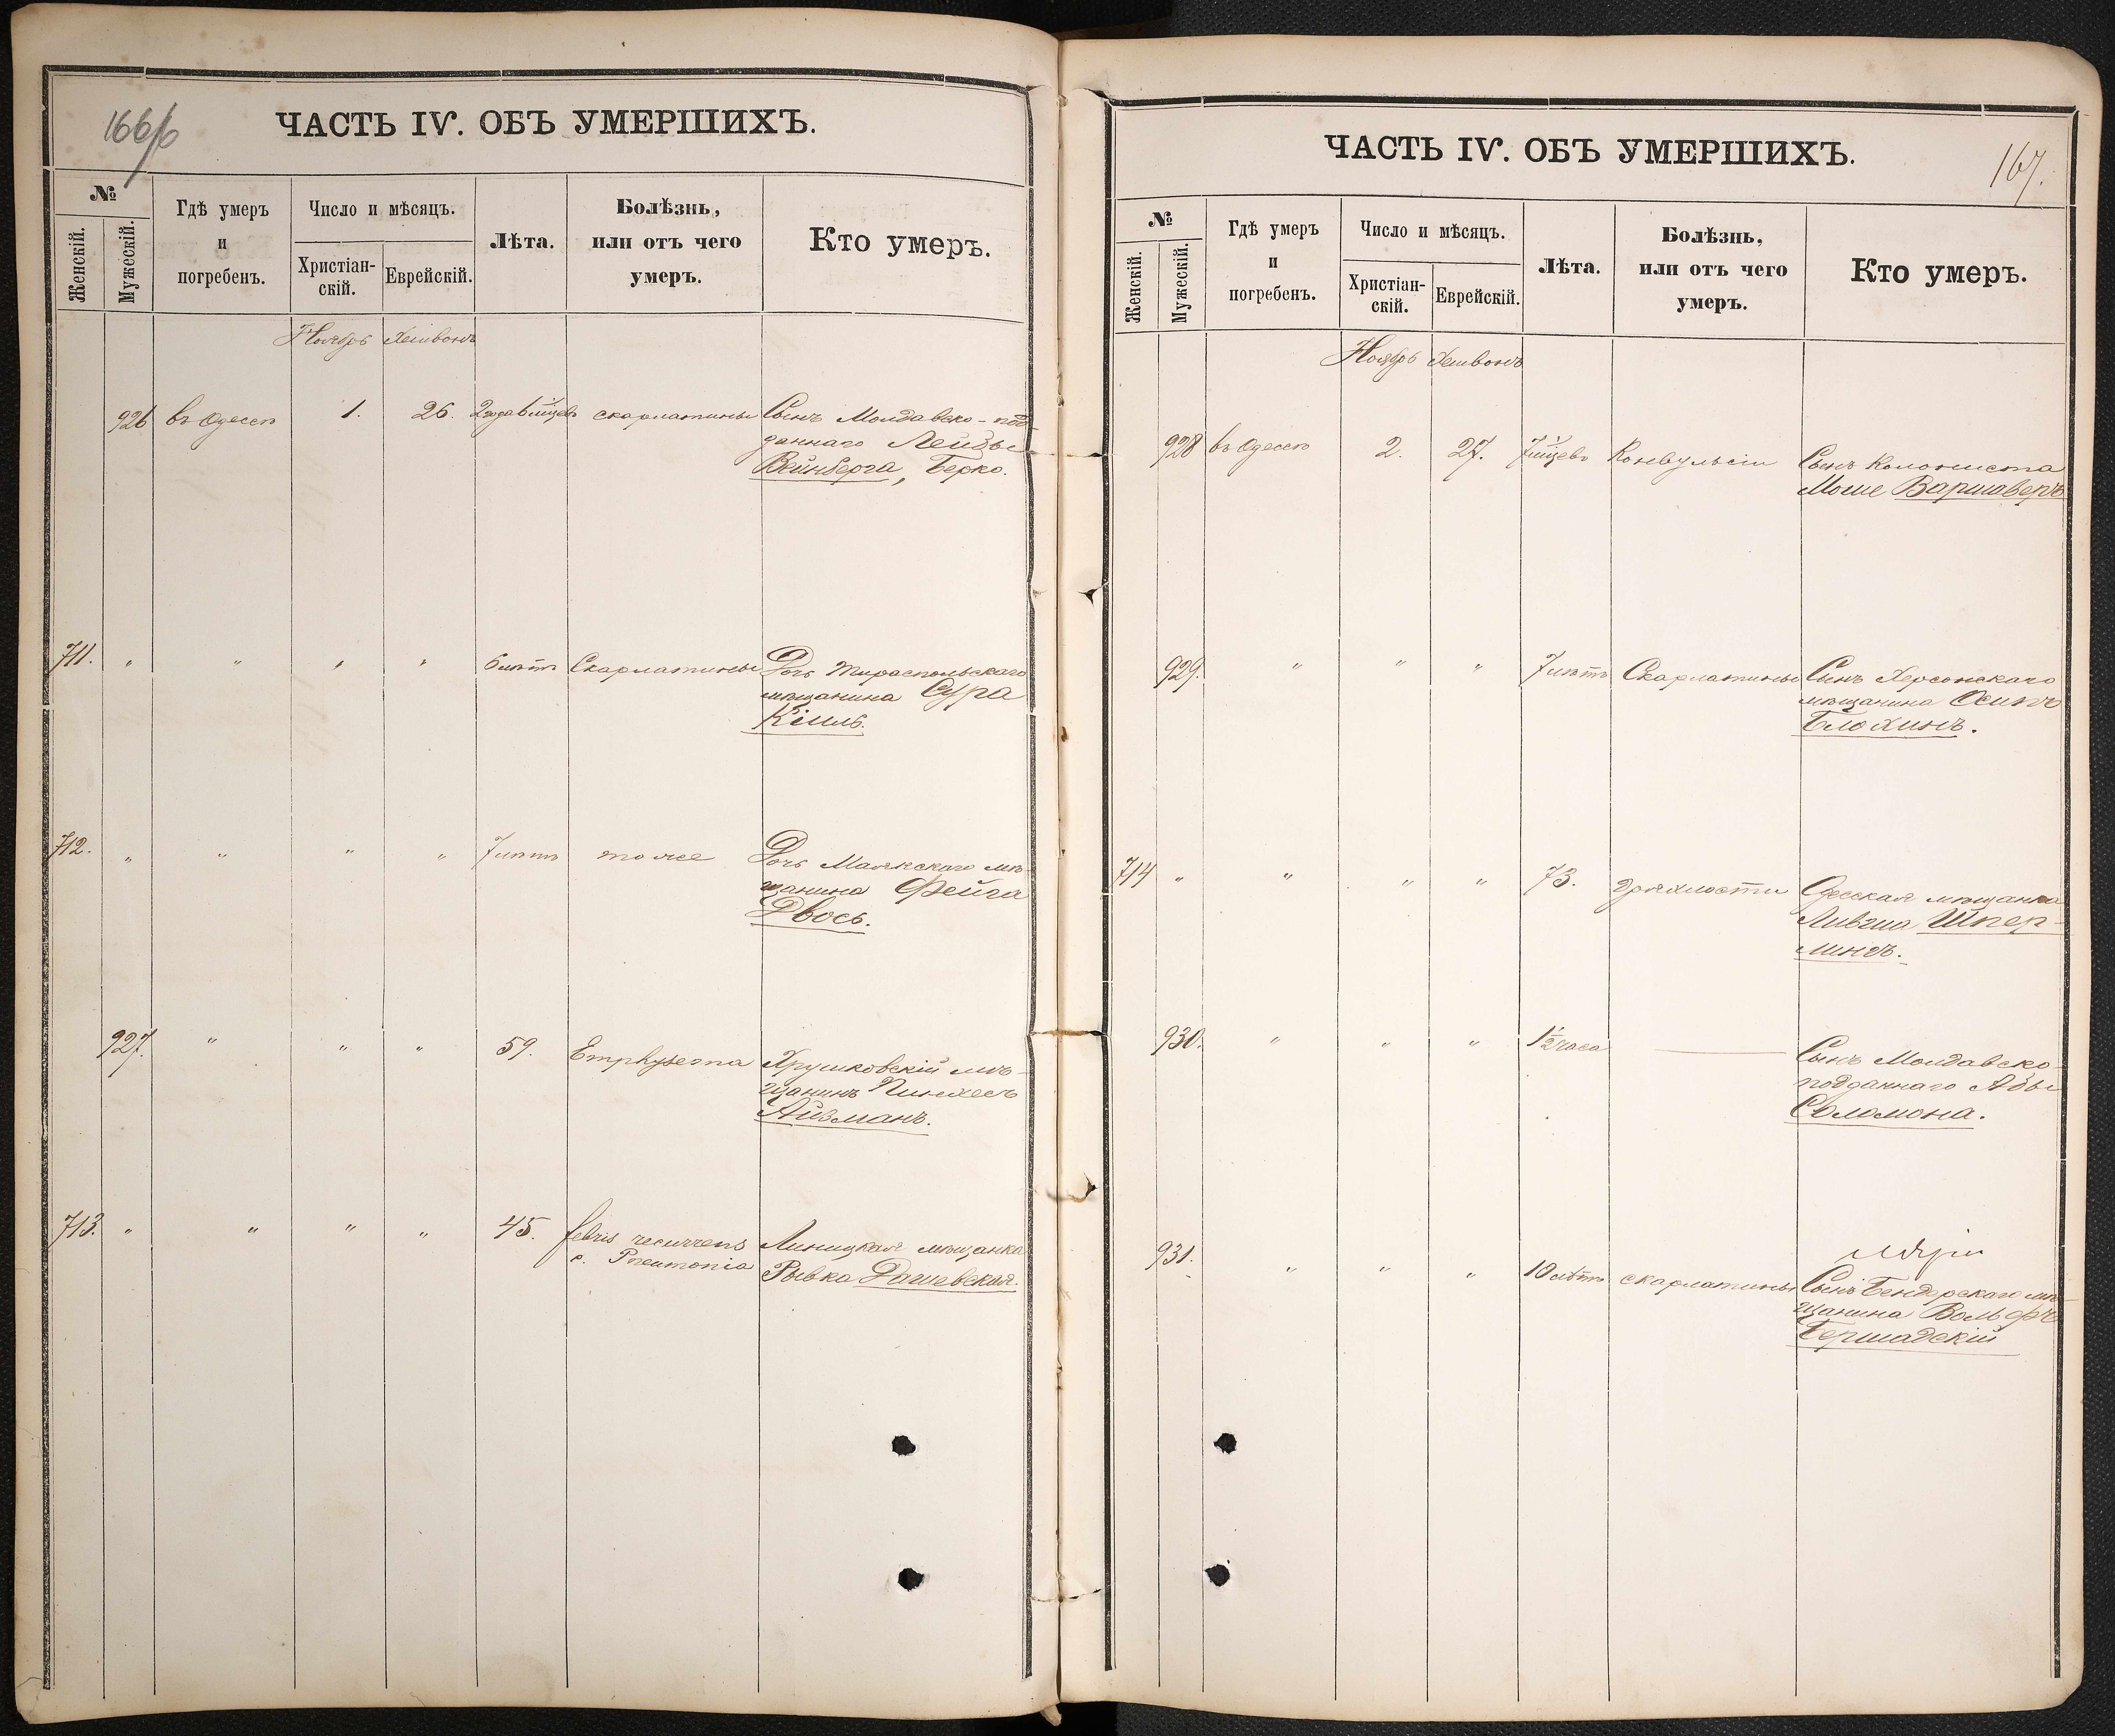 166/б
ЧАСТЬ IV. ОБЪ УМЕРШИХЪ.
№
Женскій.
Мужескій.
Гдѣ умеръ
и
погребенъ.
Число и мѣсяцъ.
Христіан-
скій.
Еврейскій.
Лѣта.
Болѣзнь,
или отъ чего
умеръ.
Кто умеръ.
Ноябрь Хешвонъ
926 въ Одессѣ 1. 26. 2 года 6 мѣсцевъ скарлатины Сынъ Молдавско-под-
даннаго Лейзы
Вейнберга, Берко.
711. " " " " 6 лѣтъ Скарлатины Дочь Тираспольскаго
мѣщанина Сура
Кіиль.
712. " " " " 7 лѣтъ тоже Дочь Маякскаго мѣ-
щанина Фейга
Двось.
927. " " " 59. Emphysema Хрушковскій мѣ-
щанинъ Пинхесъ
Айзманъ.
713. " " " " 45. febris recurrens Линицкая мѣщанка
c. Pneumonia Рывка Дашевская.
ЧАСТЬ IV. ОБЪ УМЕРШИХЪ.
167.
№
Женскій.
Мужескій.
Гдѣ умеръ
и
погребенъ.
Число и мѣсяцъ.
Христіан-
скій.
Еврейскій.
Лѣта.
Болѣзнь,
или отъ чего
умеръ.
Кто умеръ.
Ноябрь Хешвонъ
928 въ Одессѣ 2. 27. 7 мѣсцевъ Конвульсіи Сынъ Колониста
Моше Варшаверъ
929. " " " 7 лѣтъ Скарлатины Сынъ Херсонскаго
мѣщанина Осипъ
Блохинъ.
714 " " " " 73. дряхлости Одесская мѣщанка
Ливша Шпер-
лингъ.
930. " " " 1½ часа Сынъ Молдавско-
подданнаго Абы
Соломона.
931. " " " 10 лѣтъ скарлатины Сынъ Бендерскаго мѣ-
щанина Вольфъ
Бершадскій